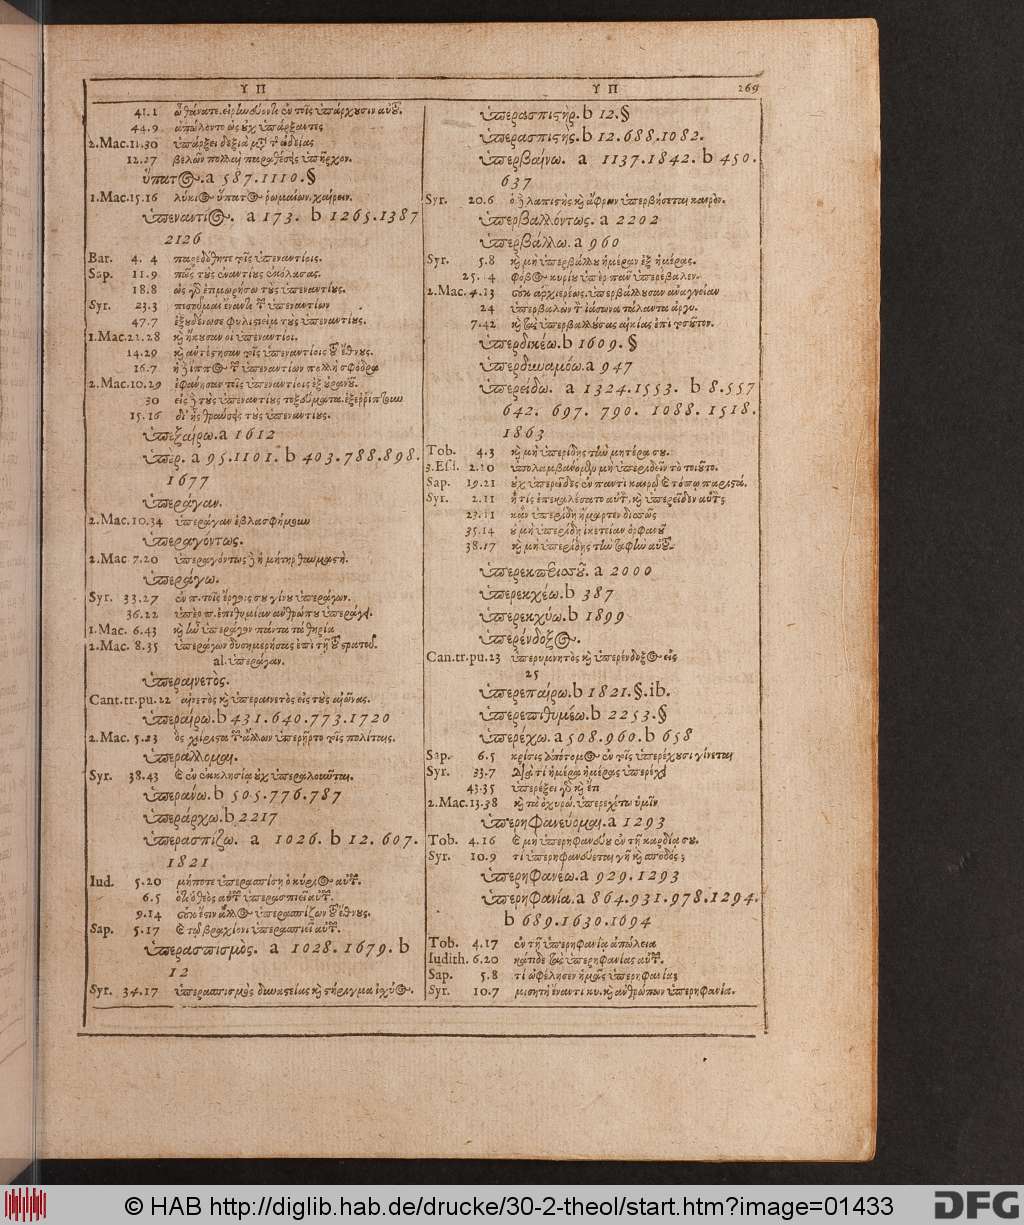 Υ Π
41.1 ὦ θάνατε. εἰρηνεύοντι ἐν τοῖς ὑπάρχουσιν αὐτοῦ.
44.9 ἀπώλοντο ὡς οὐχ ὑπάρξαντες
2.Mac.11.30 ὑπάρξει δεξιὰ μετὰ τῆς ἀδείας
12.27 βελῶν πολλαὶ παραθέσεις ὑπῆρχον.
ὕπατος. a 587.1110.§
1.Mac.15.16 λεύκιος ὕπατος ῥωμαίων. χαίρειν.
ὑπεναντίος. a 173. b 1265.1387
2126
Bar. 4. 4 παρεδόθητε τοῖς ὑπεναντίοις.
Sap. 11.9 πῶς τοὺς ἐναντίους ἐκόλασας.
18.8 ὡς γὰρ ἐτιμωρήσω τοὺς ὑπεναντίους.
Syr. 23.3 πεσοῦμαι ἔναντι τῶν ὑπεναντίων
47.7 ἐξουδένωσε φυλιστιεὶμ τοὺς ὑπεναντίους.
1.Mac.21.28 καὶ ἤκουσαν οἱ ὑπεναντίοι.
14.29 καὶ ἀντέστησαν τοῖς ὑπεναντίοις τοῦ ἔθνους.
16.7 ἡ δὲ ἵππος τῶν ὑπεναντίων πολλὴ σφόδρα
2.Mac.10.29 ἐφάνησαν τοῖς ὑπεναντίοις ἐξ οὐρανοῦ.
30 εἰς δὲ τοὺς ὑπεναντίους τοξεύματα. ἐξερρίπτουν
15.16 δι' ἧς θραύσεις τοὺς ὑπεναντίους.
ὑπεξαίρω. a 1612
ὑπέρ. a 95.1101. b 403.788.898.
1677
ὑπεράγαν.
2.Mac.10.34 ὑπεράγαν ἐβλασφήμουν
ὑπεραγόντως.
2.Mac 7.20 ὑπεραγόντως δὲ ἡ μήτηρ θαυμαστὴ.
ὑπεράγω.
Syr. 33.27 ἐν π. τοῖς ἔργοις σου γίνου ὑπεράγων.
36.22 ὑπὲρ π. ἐπιθυμίαν ἀνθρώπου ὑπεράγει.
1.Mac. 6.43 καὶ ἦν ὑπεράγον πάντα τὰ θηρία
2.Mac. 8.35 ὑπεράγων δυσημερήσας ἐπὶ τῇ τοῦ στρατοῦ.
al. ὑπεράγαν.
ὑπεραινετὸς.
Cant.tr.pu.22 αἰνετὸς καὶ ὑπεραινετὸς εἰς τοὺς αἰῶνας.
ὑπεραίρω. b 431.640.773.1720
2.Mac. 5.23 ὃς χείριστα τῶν ἄλλων ὑπερῄρετο τοῖς πολίταις.
ὑπεράλλομαι.
Syr. 38.43 καὶ ἐν ἐκκλησίᾳ οὐχ ὑπεραλοῦνται.
ὑπεράνω. b 505.776.787
ὑπεράρχω. b 2217
ὑπερασπίζω. a 1026. b 12. 607.
1821
Iud. 5.20 μήποτε ὑπερασπίσῃ ὁ κύριος αὐτῶν.
6.5 ὅτι ὁ θεὸς αὐτῶν ὑπερασπιεῖ αὐτῶν.
9.14 οὐκ ἔστιν ἄλλος ὑπερασπίζων τοῦ ἔθνους.
Sap. 5.17 καὶ τῷ βραχίονι ὑπερασπιεῖ αὐτῶν.
ὑπερασπισμὸς. a 1028.1679. b
12
Syr. 34.17 ὑπερασπισμὸς δυναστείας καὶ στήριγμα ἰσχύος.
Υ Π 269
ὑπερασπιστὴρ. b 12.§
ὑπερασπιστὴς. b 12.688.1082.
ὑπερβαίνω. a 1137.1842. b 450.
637
Syr. 20.6 ὁ δὲ λαπιστὴς καὶ ἄφρων ὑπερβήσεται καιρὸν.
ὑπερβαλλόντως. a 2202
ὑπερβάλλω. a 960
Syr. 5.8 καὶ μὴ ὑπερβάλλου ἡμέραν ἐξ ἡμέρας.
25. 4 φόβος κυρίου ὑπὲρ πᾶν ὑπερέβαλεν.
2.Mac. 4.13 οὐκ ἀρχιερέως. ὑπερβάλλουσαν ἀναγνείαν
24 ὑπερβαλὼν τὸν ἰάσωνα τάλαντα ἀργυ.
7.42 καὶ τὰς ὑπερβαλλούσας αἰκίας ἐπὶ τοσοῦτον.
ὑπερδικέω. b 1609. §
ὑπερδυναμόω. a 947
ὑπερείδω. a 1324.1553. b 8.557
642. 697. 790. 1088. 1518.
1863
Tob. 4.3 καὶ μὴ ὑπερίδῃς τὴν μητέρα σου.
3.Esd. 2.10 ὑπολαμβάνομεν μὴ ὑπεριδεῖν τὸ τοιοῦτο.
Sap. 19.21 οὐχ ὑπερεῖδες ἐν παντὶ καιρῷ καὶ τόπῳ παριστά.
Syr. 2.11 ἢ τίς ἐπεκαλέσατο αὐτὸν. καὶ ὑπερεῖδεν αὐτὸν;
23.11 κἂν ὑπερίδῃ ἥμαρτεν δισσῶς
35.14 οὐ μὴ ὑπερίδῃ ἱκετείαν ὀρφανοῦ
38.17 καὶ μὴ ὑπερίδῃς τὴν ταφὴν αὐτοῦ.
ὑπερεκπερισσοῦ. a 2000
ὑπερεκχέω. b 387
ὑπερεκχύω. b 1899
ὑπερένδοξος.
Can.tr.pu.23 ὑπερυμνητὸς καὶ ὑπερένδοξος εἰς
25
ὑπερεπαίρω. b 1821.§.ib.
ὑπερεπιθυμέω. b 2253.§
ὑπερέχω. a 508.960. b 658
Sap. 6.5 κρίσις ἀπότομος ἐν τοῖς ὑπερέχουσι γίνεται
Syr. 33.7 διὰ τί ἡμέρα ἡμέρας ὑπερέχει
43.35 ὑπερέξει γὰρ καὶ ἔτι
2.Mac.13.38 καὶ τὰ ὀχυρώ. ὑπερεχέτω ὑμῖν
ὑπερηφανεύομαι. a 1293
Tob. 4.16 καὶ μὴ ὑπερηφανεύου ἐν τῇ καρδίᾳ σου.
Syr. 10.9 τί ὑπερηφανεύεται γῆ καὶ σποδός;
ὑπερηφανέω. a 929.1293
ὑπερηφανία. a 864.931.978.1294.
b 689.1630.1694
Tob. 4.17 ἐν τῇ ὑπερηφανίᾳ ἀπώλεια
Iudith. 6.20 κάτιδε τὰς ὑπερηφανίας αὐτῶν.
Sap. 5.8 τί ὠφέλησεν ἡμᾶς ὑπερηφανία;
Syr. 10.7 μισητὴ ἔναντι κυ. καὶ ἀνθρώπων ὑπερηφανία.
© HAB http://diglib.hab.de/drucke/30-2-theol/start.htm?image=01433
DFG